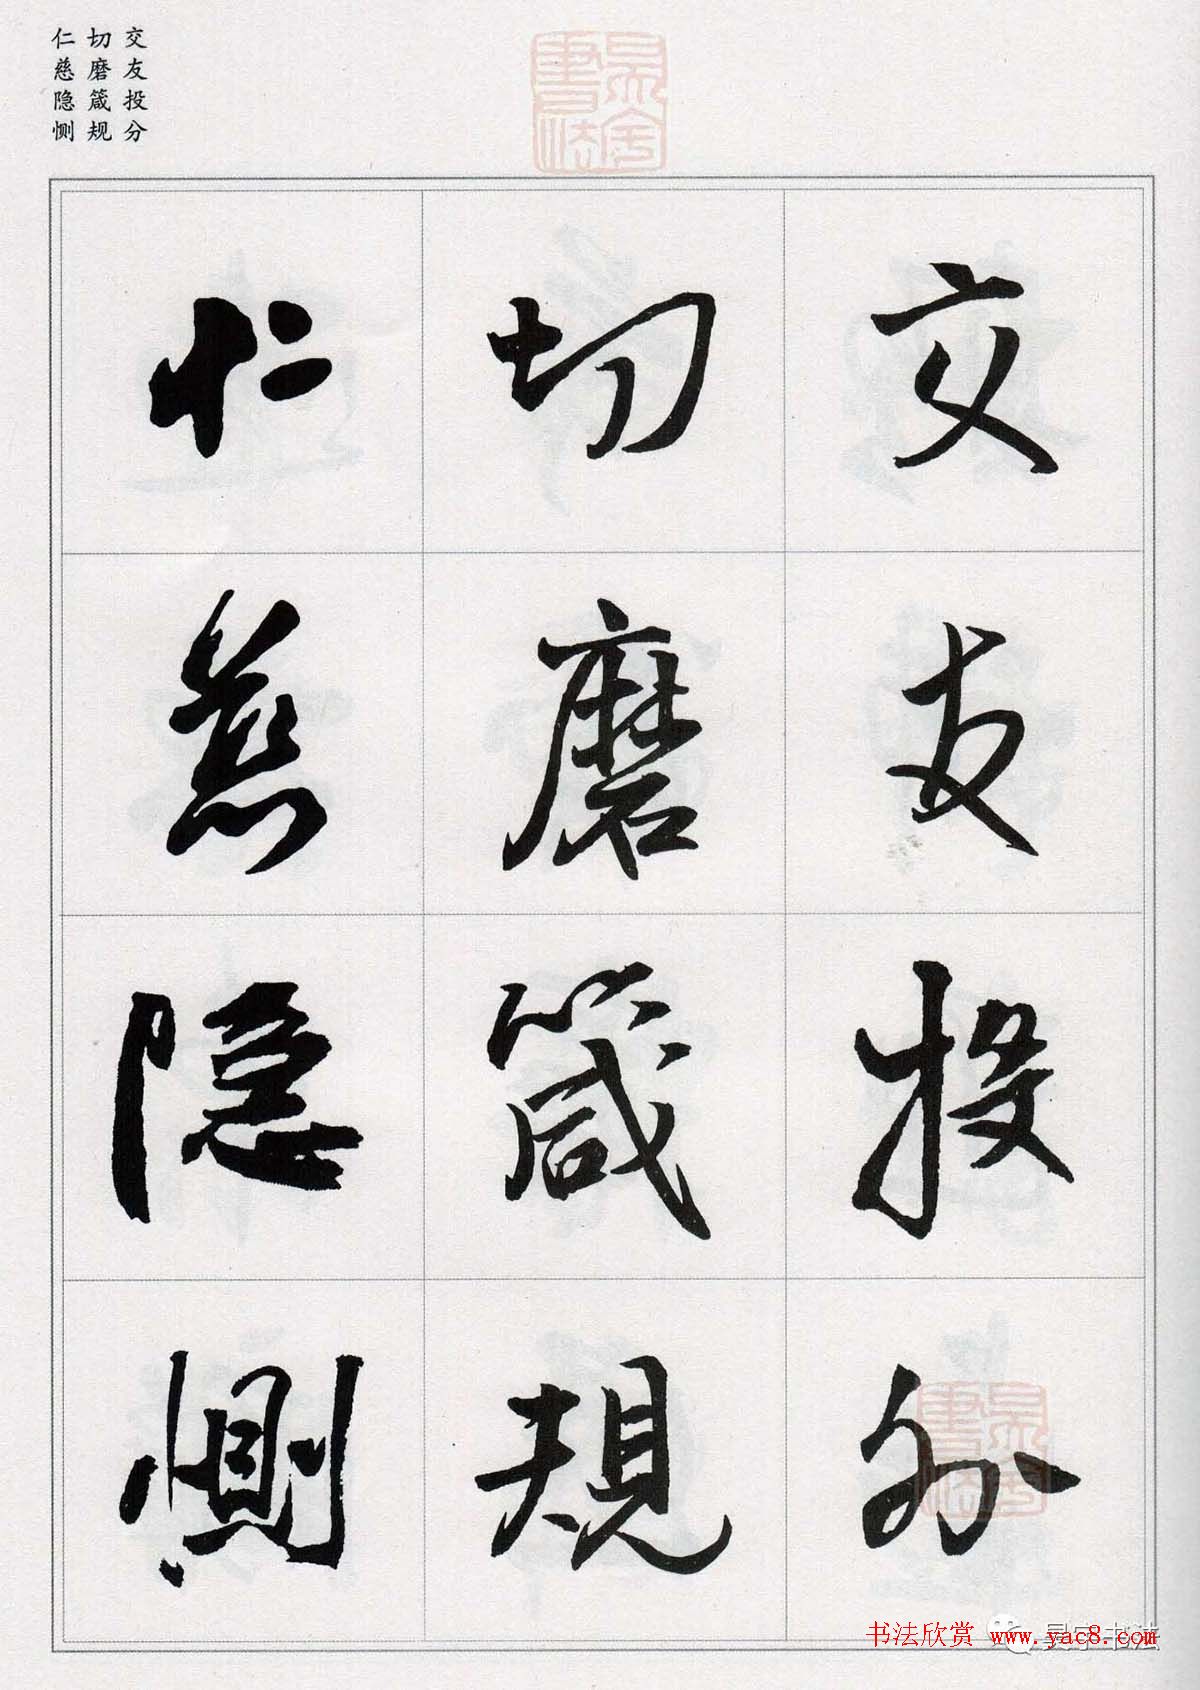 交友投分
切磨箴规
仁慈隐恻
交友投分
切磨箴規
仁慈隐恻
书法欣赏 www.yac8.com